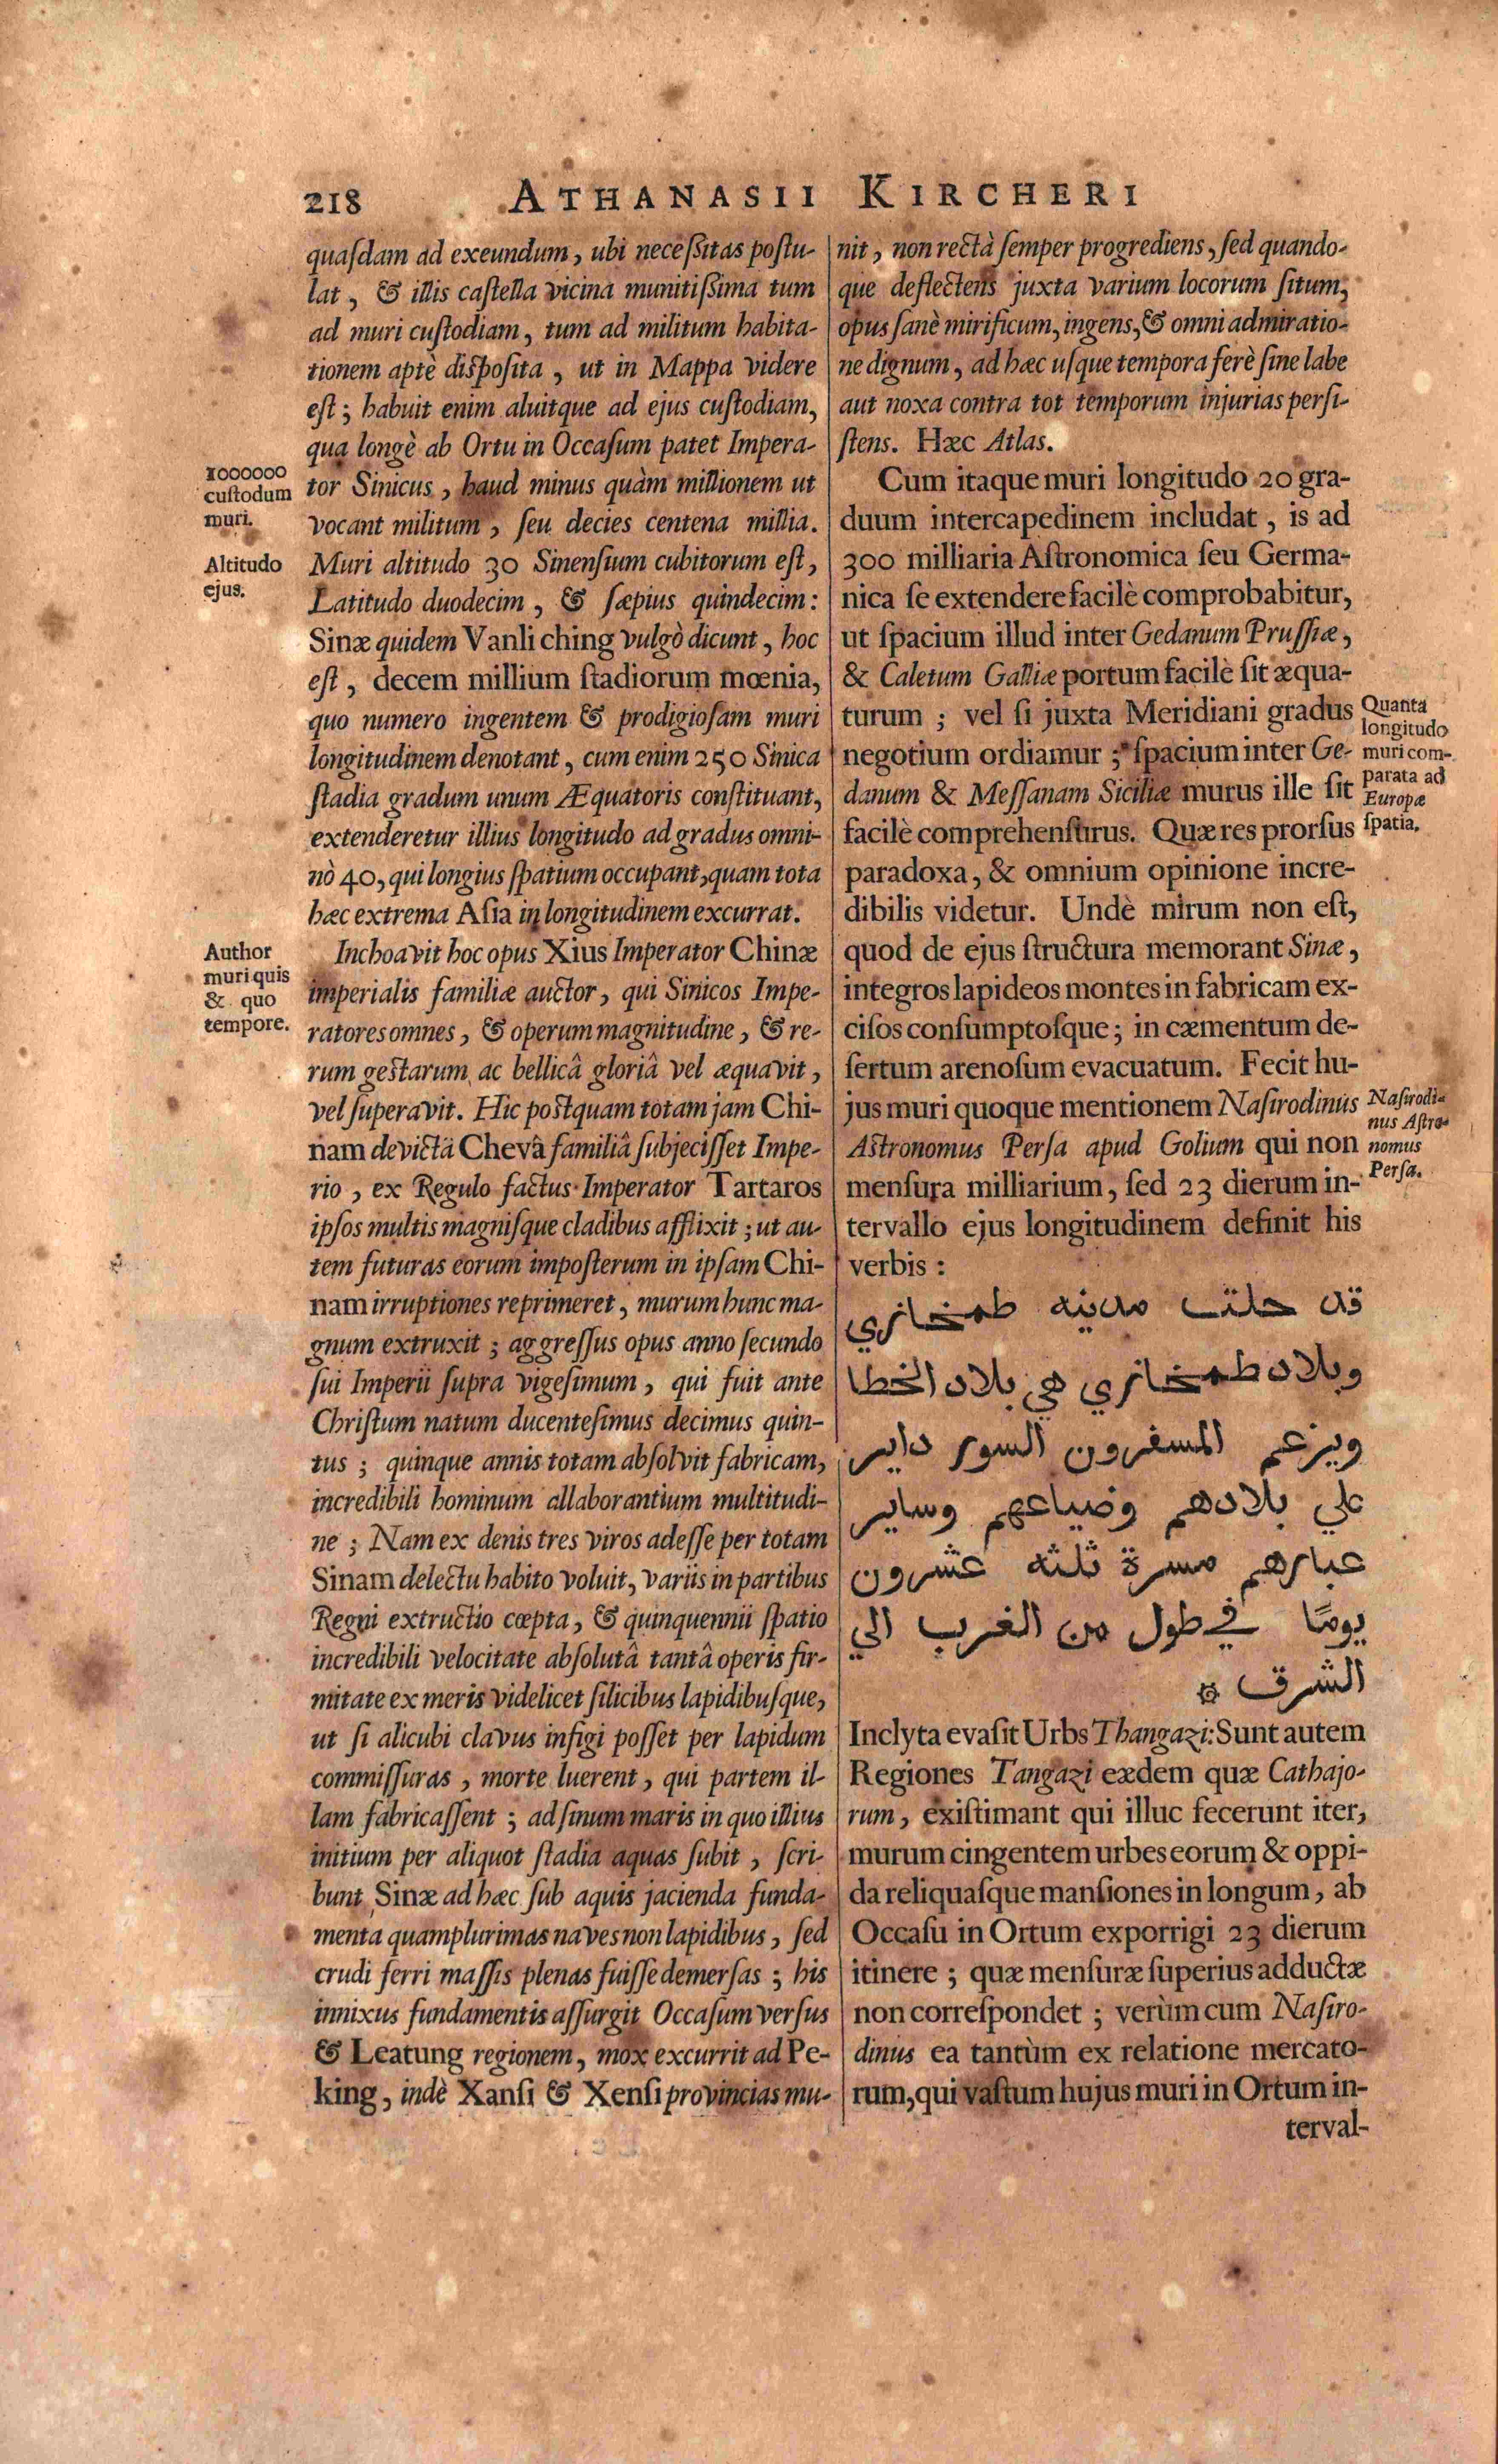 218 ATHANASII KIRCHERI
quaſdam ad exeundum, ubi neceßitas poſtu-
lat, & illis caſtella vicina munitißima tum
ad muri cuſtodiam, tum ad militum habita-
tionem aptè diſpoſita, ut in Mappa videre
eſt; habuit enim aluitque ad ejus cuſtodiam,
qua longè ab Ortu in Occaſum patet Impera-
1000000
cuſtodum
muri.
tor Sinicus, haud minus quàm millionem ut
vocant militum, ſeu decies centena millia.
Altitudo
ejus.
Muri altitudo 30 Sinenſium cubitorum eſt,
Latitudo duodecim, & ſæpius quindecim:
Sinæ quidem Vanli ching vulgò dicunt, hoc
eſt, decem millium ſtadiorum mœnia,
quo numero ingentem & prodigioſam muri
longitudinem denotant, cum enim 250 Sinica
ſtadia gradum unum Æquatoris conſtituant,
extenderetur illius longitudo ad gradus omni-
nò 40, qui longius ſpatium occupant, quam tota
hæc extrema Aſia in longitudinem excurrat.
Author
muri quis
& quo
tempore.
Inchoavit hoc opus Xius Imperator Chinæ
imperialis familiæ auctor, qui Sinicos Impe-
ratores omnes, & operum magnitudine, & re-
rum geſtarum ac bellicâ gloriâ vel æquavit,
vel ſuperavit. Hic poſtquam totam jam Chi-
nam devictâ Chevâ familiâ ſubjeciſſet Impe-
rio, ex Regulo factus Imperator Tartaros
ipſos multis magniſque cladibus afflixit; ut au-
tem futuras eorum impoſterum in ipſam Chi-
nam irruptiones reprimeret, murum hunc ma-
gnum extruxit; aggreſſus opus anno ſecundo
ſui Imperii ſupra vigeſimum, qui fuit ante
Chriſtum natum ducenteſimus decimus quin-
tus; quinque annis totam abſolvit fabricam,
incredibili hominum allaborantium multitudi-
ne; Nam ex denis tres viros adeſſe per totam
Sinam delectu habito voluit, variis in partibus
Regni extructio cœpta, & quinquennii ſpatio
incredibili velocitate abſolutâ tantâ operis fir-
mitate ex meris videlicet ſilicibus lapidibuſque,
ut ſi alicubi clavus infigi poſſet per lapidum
commiſſuras, morte luerent, qui partem il-
lam fabricaſſent; ad ſinum maris in quo illius
initium per aliquot ſtadia aquas ſubit, ſcri-
bunt Sinæ ad hæc ſub aquis jacienda funda-
menta quamplurimas naves non lapidibus, ſed
crudi ferri maſſis plenas fuiſſe demerſas; his
innixus fundamentis aſſurgit Occaſum verſus
& Leatung regionem, mox excurrit ad Pe-
king, indè Xanſi & Xenſi provincias mu-
nit, non rectà ſemper progrediens, ſed quando-
que deflectens juxta varium locorum ſitum,
opus ſanè mirificum, ingens, & omni admiratio-
ne dignum, ad hæc uſque tempora ferè ſine labe
aut noxa contra tot temporum injurias perſi-
ſtens. Hæc Atlas.
Cum itaque muri longitudo 20 gra-
duum intercapedinem includat, is ad
300 milliaria Aſtronomica ſeu Germa-
nica ſe extendere facilè comprobabitur,
ut ſpacium illud inter Gedanum Pruſſiæ,
& Caletum Galliæ portum facilè ſit æqua-
turum; vel ſi juxta Meridiani gradus
negotium ordiamur; ſpacium inter Ge-
danum & Meſſanam Siciliæ murus ille ſit
facilè comprehenſurus. Quæ res prorſus
Quanta
longitudo
muri com-
parata ad
Europæ
ſpatia.
paradoxa, & omnium opinione incre-
dibilis videtur. Undè mirum non eſt,
quod de ejus ſtructura memorant Sinæ,
integros lapideos montes in fabricam ex-
ciſos conſumptoſque; in cæmentum de-
ſertum arenoſum evacuatum. Fecit hu-
jus muri quoque mentionem Naſirodinus
Aſtronomus Perſa apud Golium qui non
menſura milliarium, ſed 23 dierum in-
Naſirodi-
nus Aſtro-
nomus
Perſa.
tervallo ejus longitudinem definit his
verbis:
قد حلت مدينه طمخازي
وبلاد طمخازي هي بلاد الخطا
ويزعم المسفرون السور داير
علي بلادهم وضياعهم وساير
عبارهم مسرة ثلثه عشرون
يومًا في طول من الغرب الي
الشرق ۞
Inclyta evaſit Urbs Thangazi: Sunt autem
Regiones Tangazi eædem quæ Cathajo-
rum, exiſtimant qui illuc fecerunt iter,
murum cingentem urbes eorum & oppi-
da reliquaſque manſiones in longum, ab
Occaſu in Ortum exporrigi 23 dierum
itinere; quæ menſuræ ſuperius adductæ
non correſpondet; verùm cum Naſiro-
dinus ea tantùm ex relatione mercato-
rum, qui vaſtum hujus muri in Ortum in-
terval-